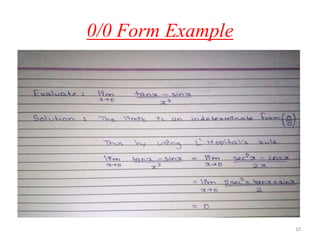 0/0 Form Example
Evaluate : lim x→0 tanx - sinx / x²
Solution : The limit is an indeterminate form (0/0)
Thus by using L' Hopital's rule
lim x→0 tanx - sinx / x² = lim x→0 sec²x - cosx / 2x
= lim x→0 2sec²x tanx + sinx / 2
= 0
10